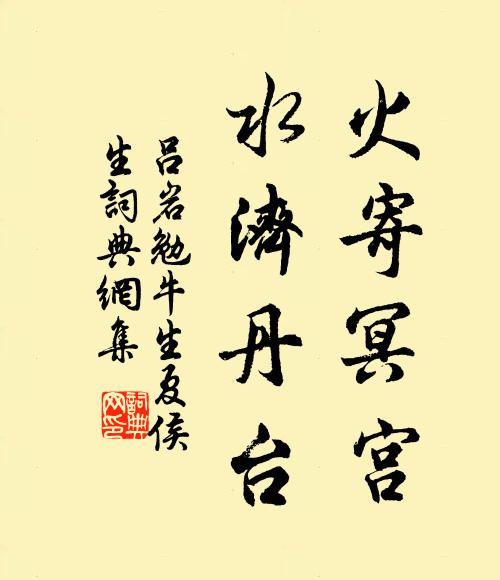 火寄冥宫
水濟丹台
呂岩勉牛生夏侯
生詞典網集
詞典网印